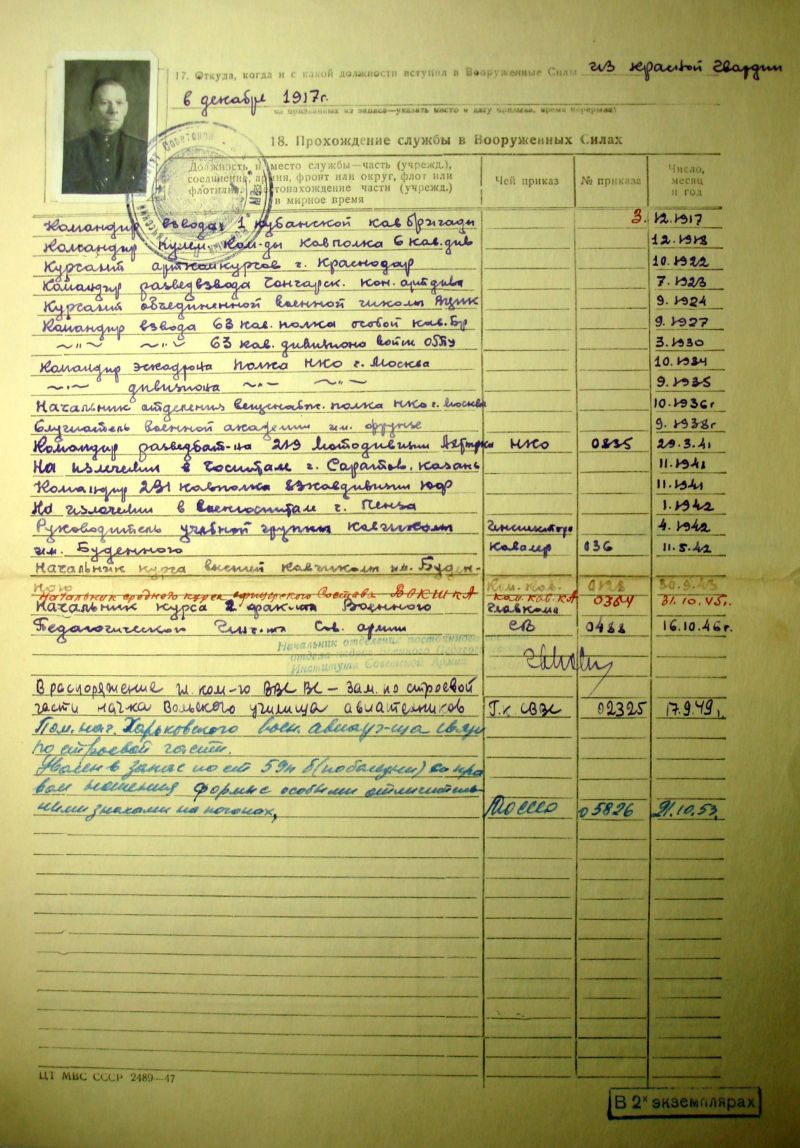 17. Откуда, когда и с какой должности вступил в Вооруженные Силы из красной гвардии
в декабре 1917г.
18. Прохождение службы в Вооруженных Силах
Должность и место службы—часть (учрежд.), соединение, армия, фронт или округ, флот или флотилия. Местонахождение части (учрежд.) в мирное время
Чей приказ
№ приказа
Число, месяц и год
Командир взвода 1 Кубанской кав бригады 3. 12.1917
Командир Пулем. Ком-ды кавполка 6 кав. див 12.1918
Курсант арткомкурсов г. Краснодар 10.1922
Командир разведвзвода Чонгарск. кон. артдива 7.1923
Курсант объединенной военной школы 9.1924
Командир взвода 63 кав. полка особой кав. бр 9.1927
—"— —"— 63 кав. дивизиона войск ОГПУ 3.1930
Командир эскадрона полка НКО г. Москва 10.1934
—"— дивизиона —"— —"— 9.1935
Начальник отделения вещснабж. полка НКО г. Москва 10.1936г
Слушатель военной академии им. Фрунзе 9.1938г
Командир разведбат-на 219 Мотодивизии НКО 0235 29.3.41
На излечении в госпитале г. Саратов, Казань 11.1941
Командир 291 кавполка кавдивизии ЮФ 11.1941
На излечении в военгоспитале г. Пенза 1.1942
Руководитель учебной группы Кавшколы 4.1942
им. Буденного 036 11.5.42
Начальник курса высшей кавшколы им. Буден-
ного Ком. Кав. 30.9.43
Начальник среднего курса офицерского состава ВОКШКА Ком. кав. КА 0384 31.10.45г.
Начальник курса 2 фак-та Военного Главкома
Педагогического Инст-та Сов. армии СВ 0488 16.10.46г.
Начальник отделения постоянного
отдела кадров Военного Педагог.
Института Советской Армии
В распоряжение гл. ком-го ВВС ВС — Зам. по строевой
части нач-ка Вольского училища авиатехников Гл. к ВВС 02325 17.9.49г.
Пом. нач. Харьковского воен. авиауч-ща связи
по строевой части.
Уволен в запас по ст 59п б (по болезни) со пра
вом ношения формы с особыми отличитель-
ными знаками на погонах, 05826 21.10.53
ЦТ МВС СССР 2489—47
В 2х экземплярах